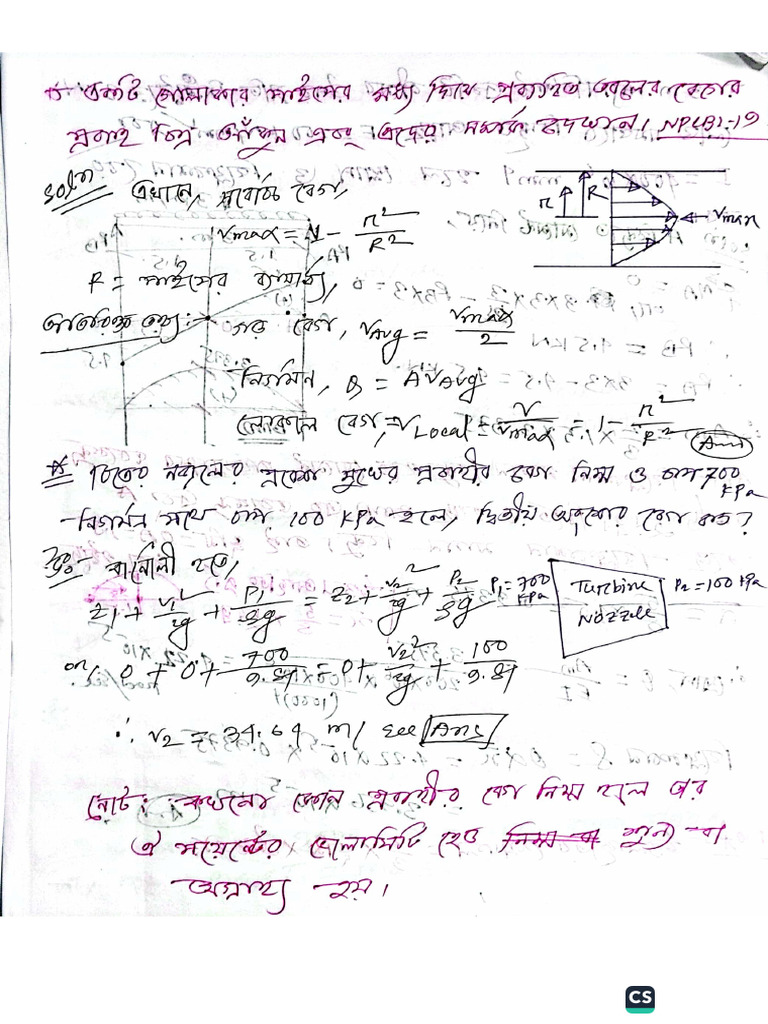 একটি গোলাকার পাইপের মধ্য দিয়ে প্রবাহিত তরলের বেগের
প্রবাহ চিত্র আঁকুন এবং এদের সম্পর্ক দেখান। NPCBL-19
Soln এখানে, সর্বোচ্চ বেগ,
r R Vmax
Vmax = 1 - r²/R²
R = পাইপের ব্যাসার্ধ,
অতিরিক্ত তথ্য: গড় বেগ, VAvg = Vmax/2
নির্গমন, Q = A VAvg
লোকাল বেগ, VLocal = V/Vmax = 1 - r²/R² (Ans)
চিত্রের নজেলের প্রবেশ মুখের প্রবাহীর বেগ নিম্ন ও চাপ 700 KPa
নির্গমন পথে চাপ 100 KPa হলে, দ্বিতীয় অংশের বেগ কত?
বার্নোলী হতে,
Z1 + V1²/2g + P1/ρg = Z2 + V2²/2g + P2/ρg
P1 = 700 KPa Turbine Nozzele P2 = 100 KPa
or, 0 + 0 + 700/9.81 = 0 + V2²/2g + 100/9.81
∴ V2 = 34.64 m/sec Ans
নোট: কখনো কোন প্রবাহীর বেগ নিম্ন হলে তার
ঐ পয়েন্টের ভেলোসিটি হেড নিম্ন বা শূন্য বা
অগ্রাহ্য হয়।
CS